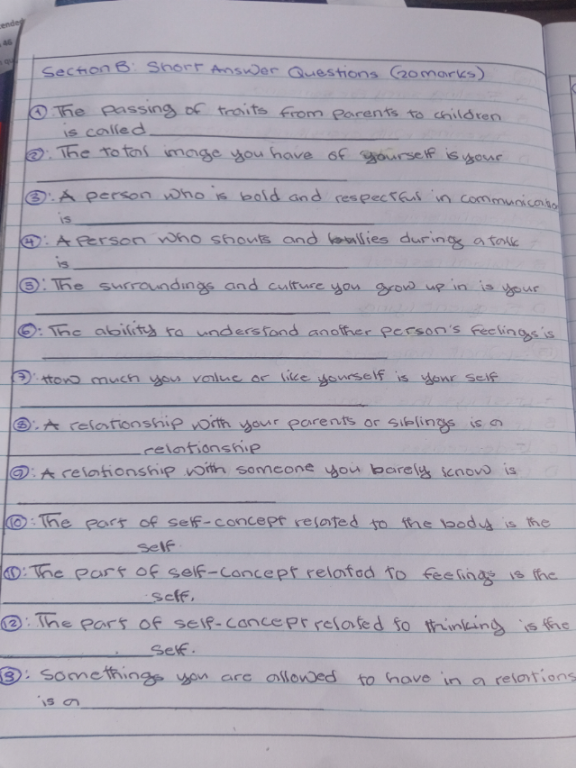 Section B: Short Answer Questions (20marks)
① The passing of traits from parents to children
is called ____________
②: The total image you have of yourself is your
____________
③: A person who is bold and respectful in communication
is ____________
④: A person who shouts and bullies durings a talk
is ____________
⑤: The surroundings and culture you grow up in is your
____________
⑥: The ability to understand another person's feelings is
____________
⑦: How much you value or like yourself is your self
____________
⑧: A relationship with your parents or siblings is a
____________ relationship
⑨: A relationship with someone you barely know is
____________
⑩: The part of self-concept related to the body is the
____________ self.
⑪: The part of self-concept related to feelings is the
____________ self.
⑫: The part of self-concept related to thinking is the
____________ self.
⑬: Somethings you are allowed to have in a relations
is a ____________